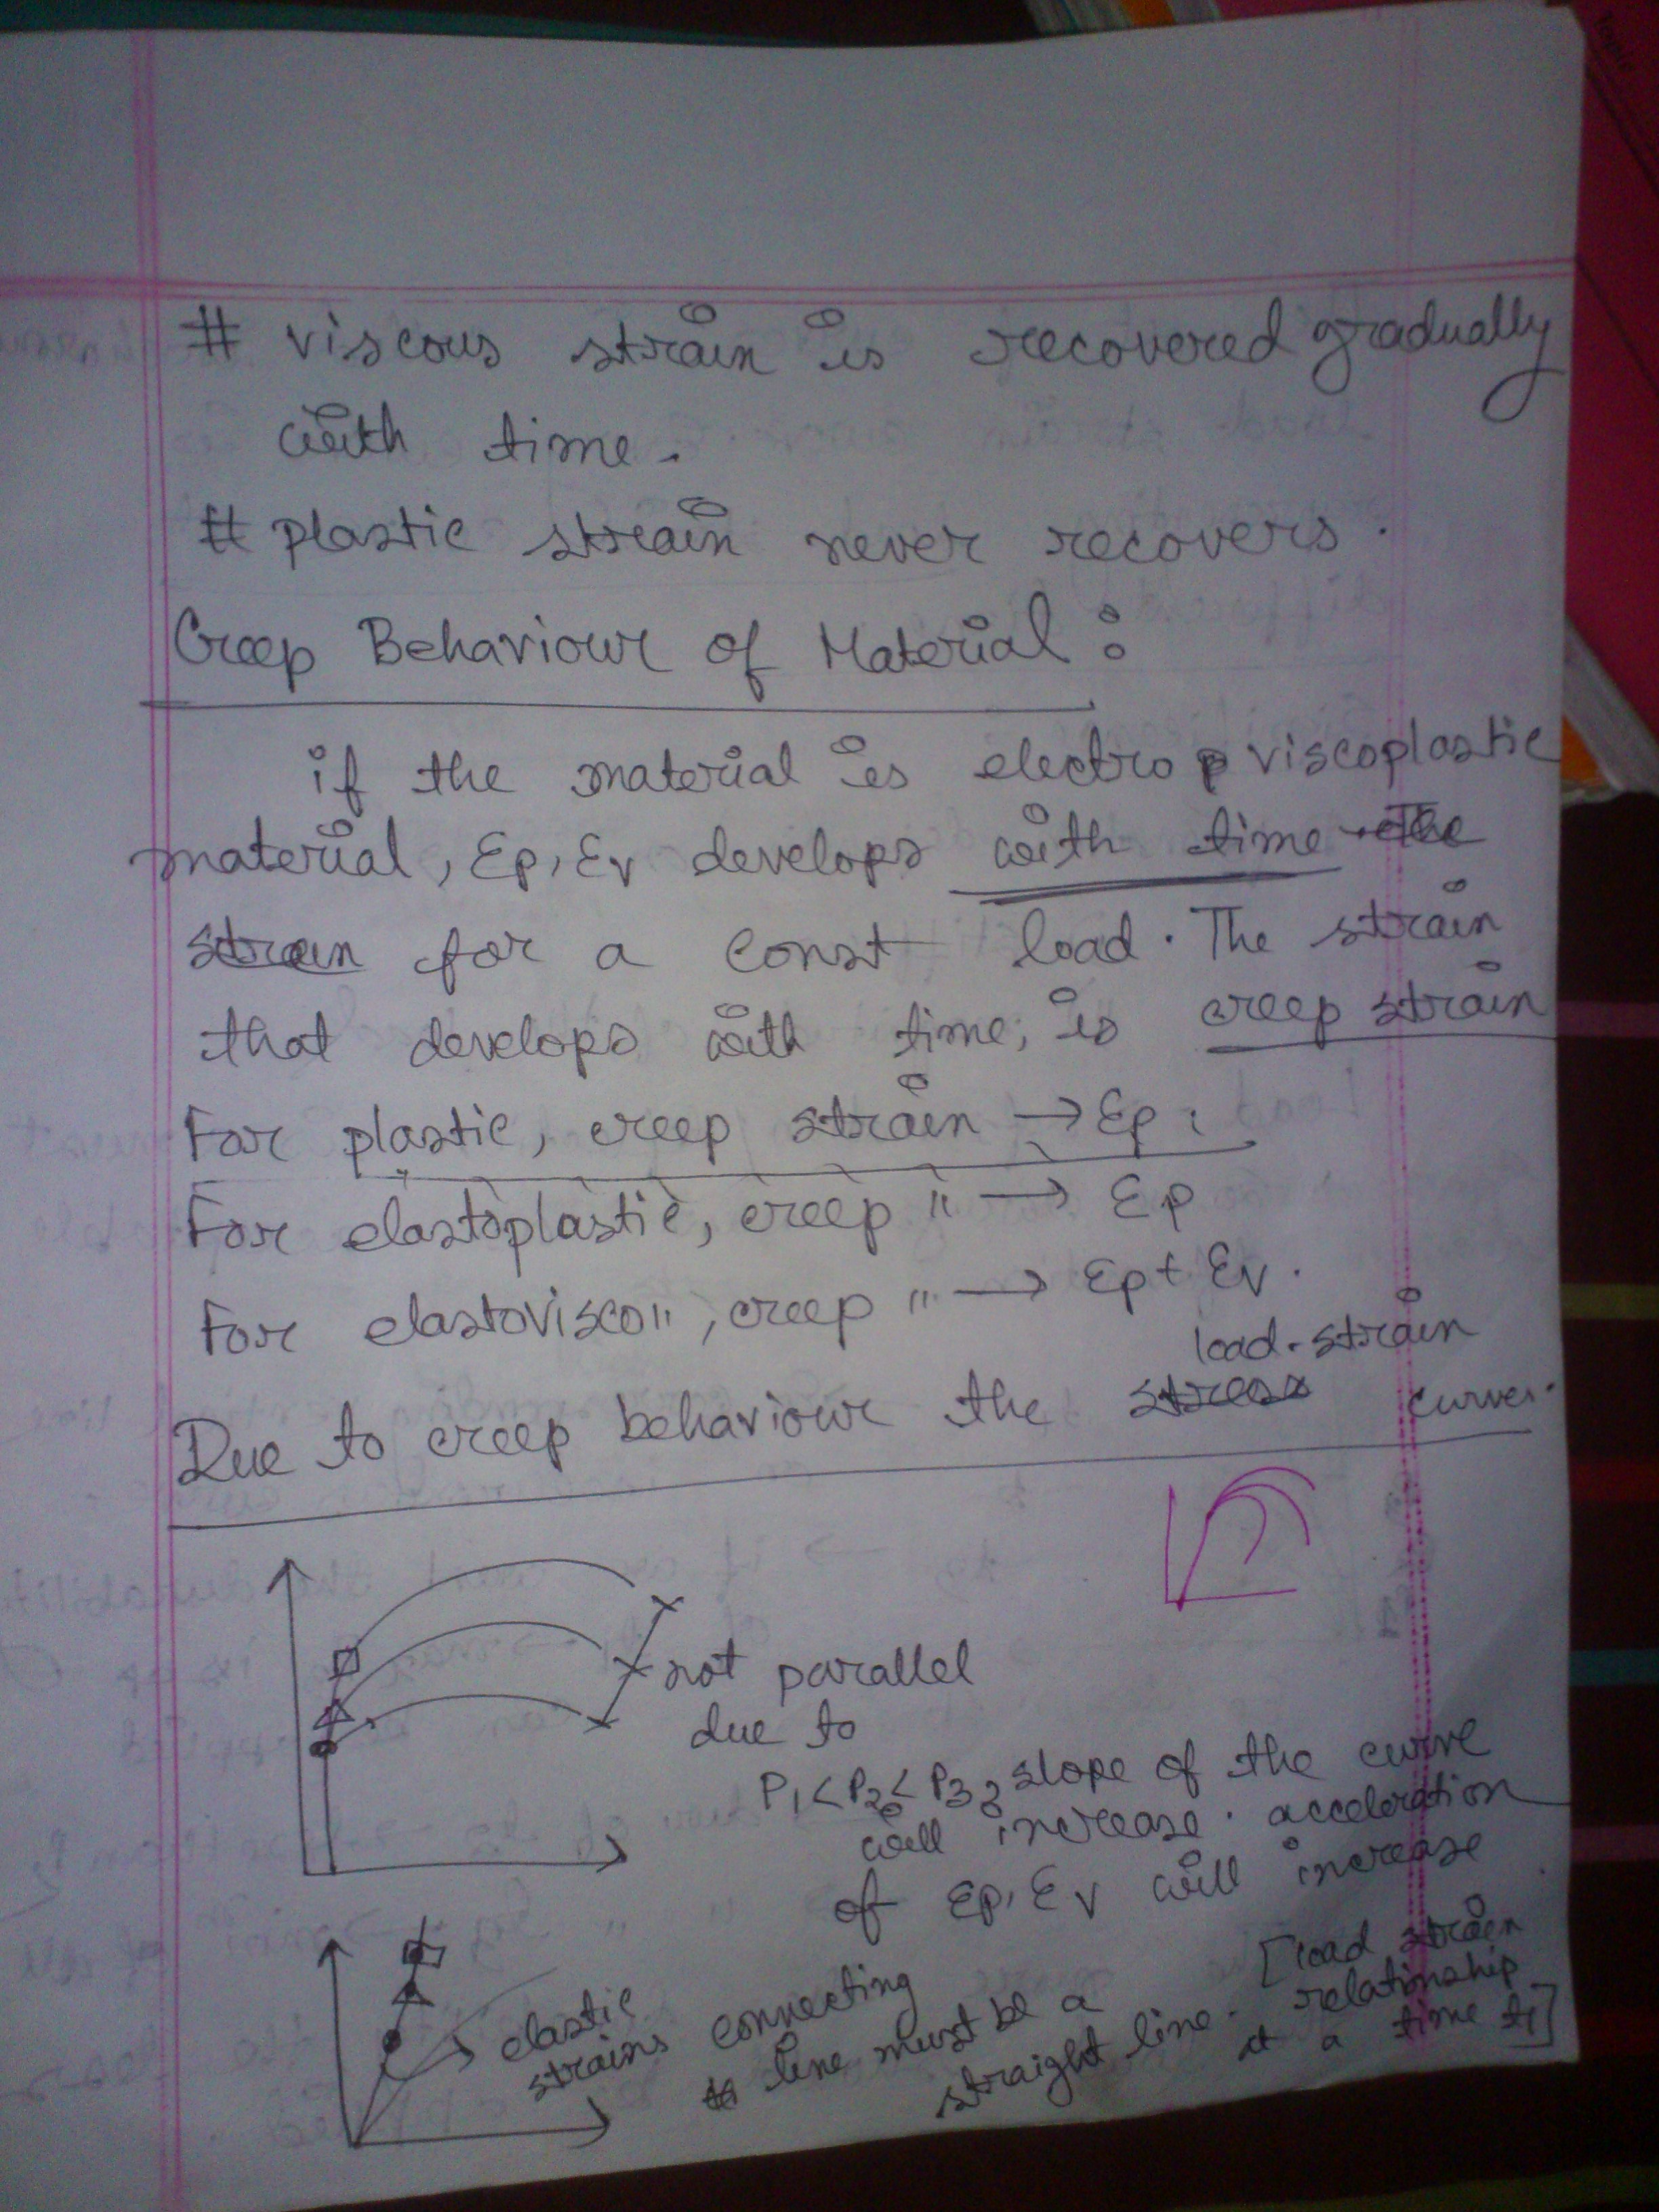 # viscous strain is recovered gradually
with time.
# plastic strain never recovers.
Creep Behaviour of Material :
if the material is electro viscoplastic
material, Ep, Ev develops with time The
strain for a const load. The strain
that develops with time, is creep strain
For plastic, creep strain → Ep ;
For elastoplastic, creep " → Ep
For elastovisco", creep " → Ep + Ev.
load-strain
Due to creep behaviour the stress curves.
not parallel
due to
P1 < P2 < P3, slope of the curve
will increase. acceleration
of Ep, Ev will increase
elastic
strains connecting
line must be a
straight line.
[load strain
relationship
at a time t1]